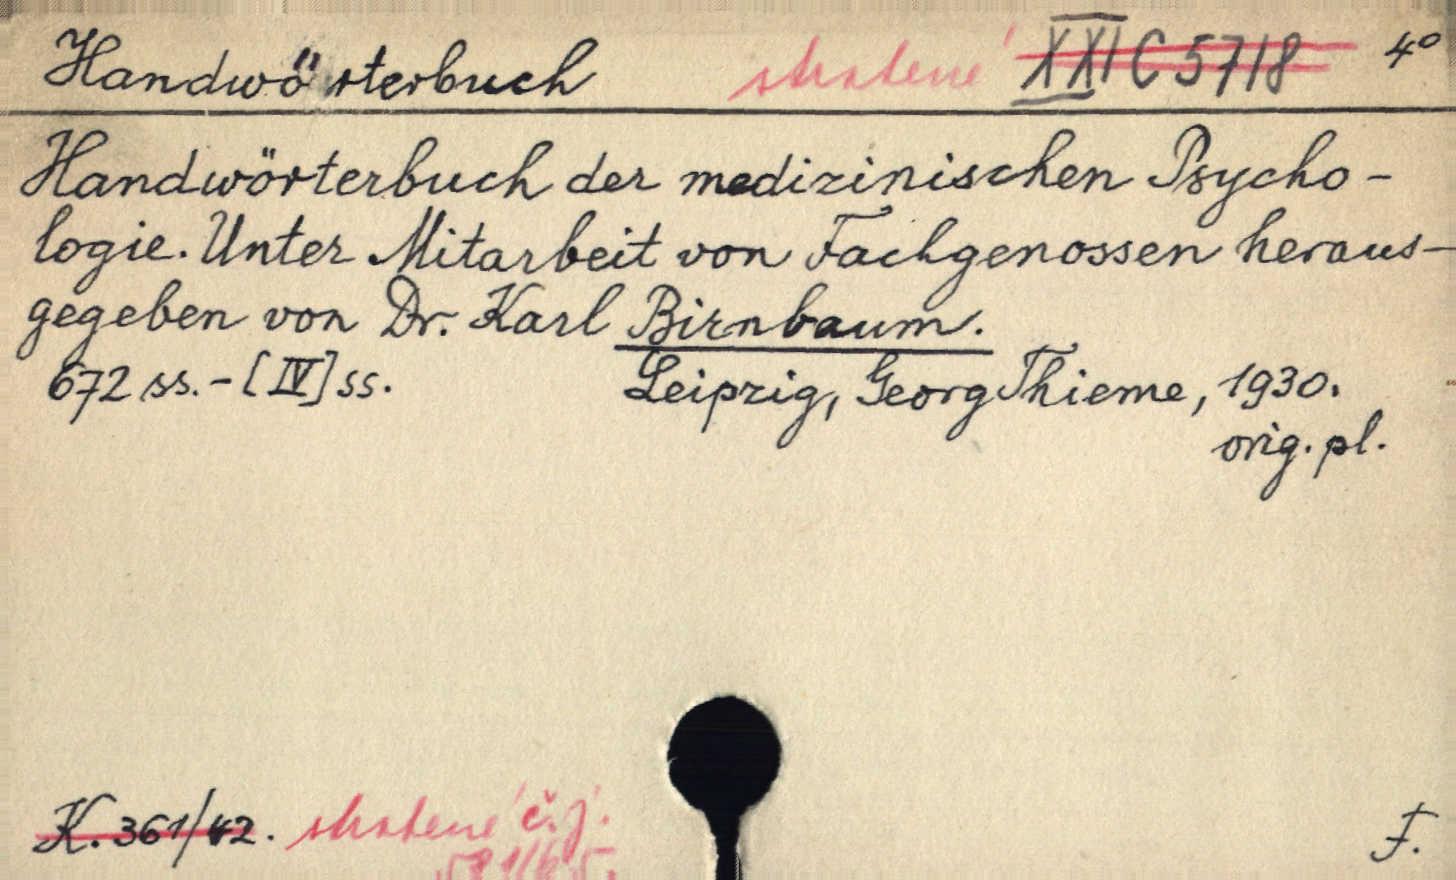 Handwörterbuch stratené XXI C 5718 4°
Handwörterbuch der medizinischen Psycho-
logie. Unter Mitarbeit von Fachgenossen heraus-
gegeben von Dr. Karl Birnbaum.
672 ss. - [IV] ss. Leipzig, Georg Thieme, 1930.
orig. pl.
K. 361/42. stratené č.j. F.